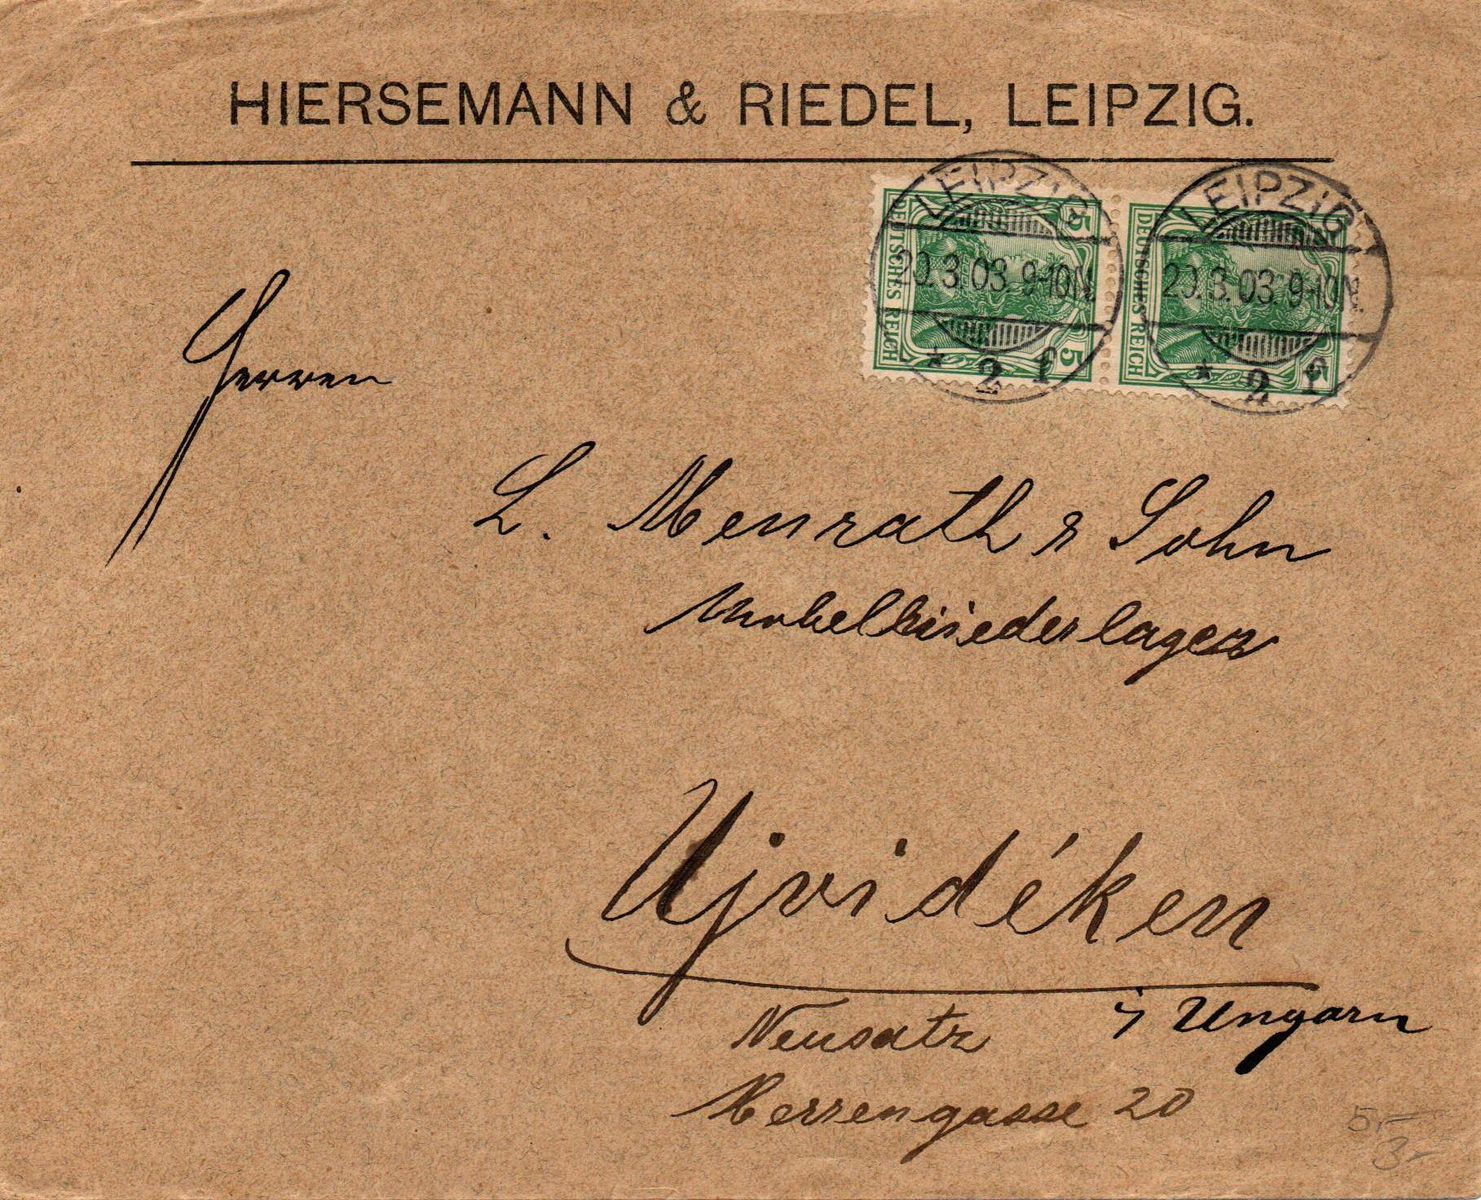 HIERSEMANN & RIEDEL, LEIPZIG.
LEIPZIG
20.3.03. 9-10N.
* 2 f
LEIPZIG
20.3.03. 9-10N.
* 2 f
DEUTSCHES REICH
5
5
DEUTSCHES REICH
5
5
Herren
L. Menrath & Sohn
Möbelniederlagen
Ujvidéken
Neusatz i/ Ungarn
Herrengasse 20
5.-
3-